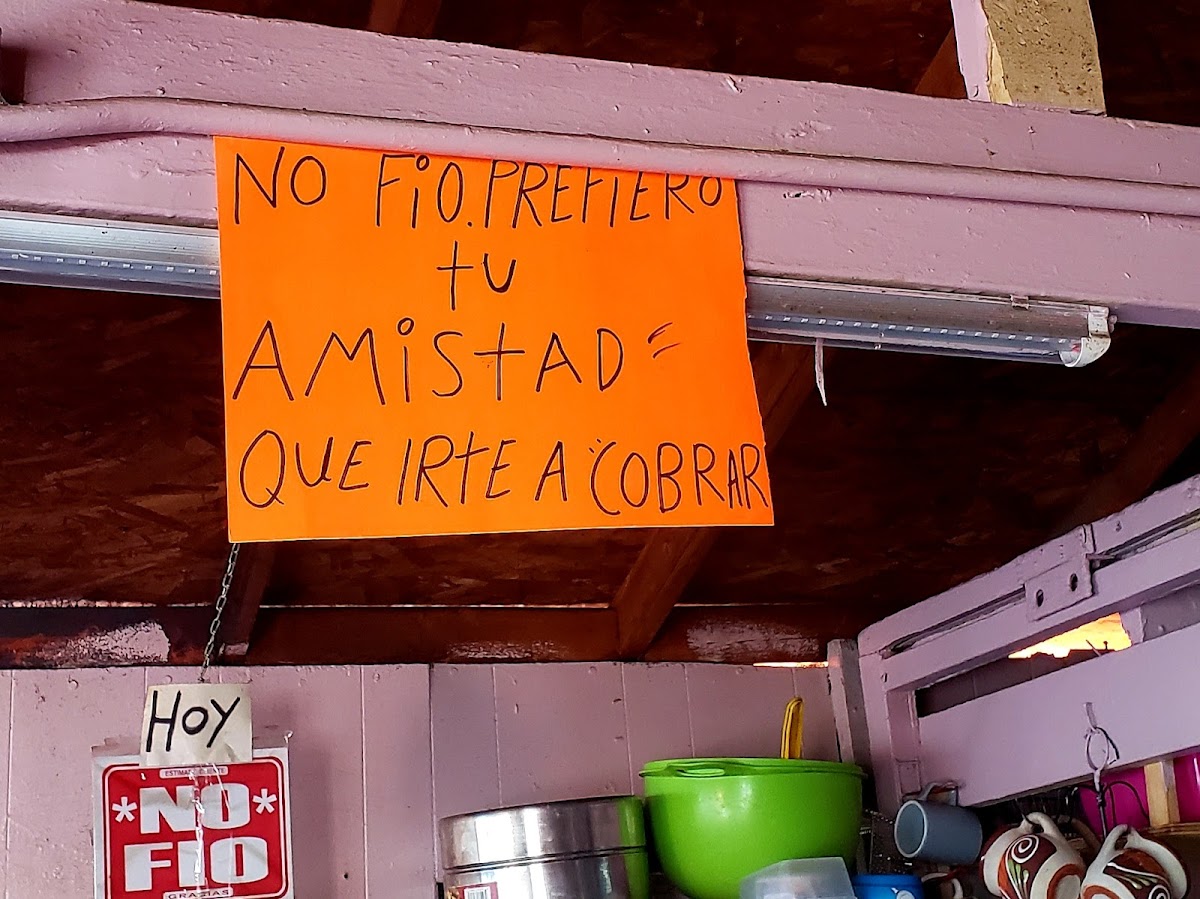 NO FiO. PREFIERO
tU
AMiStAD =
QUE IRtE A COBRAR
HOY
ESTIMADO CLIENTE
*NO*
FIO
GRACIAS